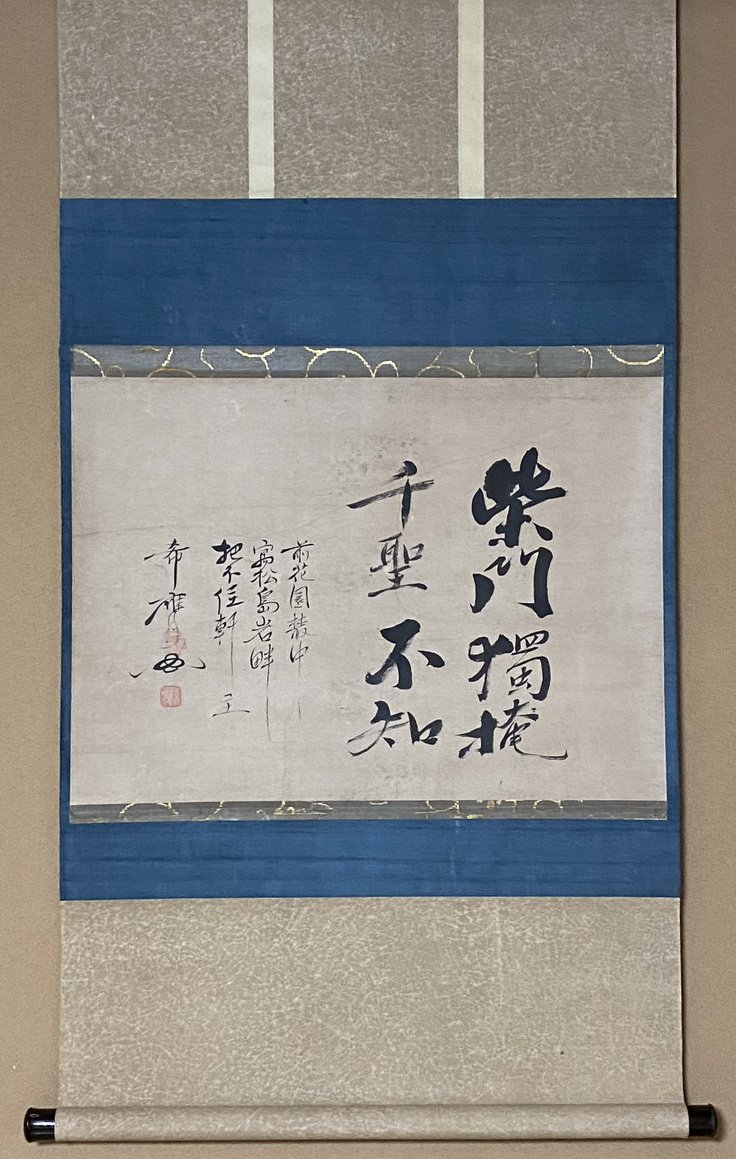 柴門獨掩
千聖不知
前花園叢中
寓松島岩畔
把不住軒主
希雄